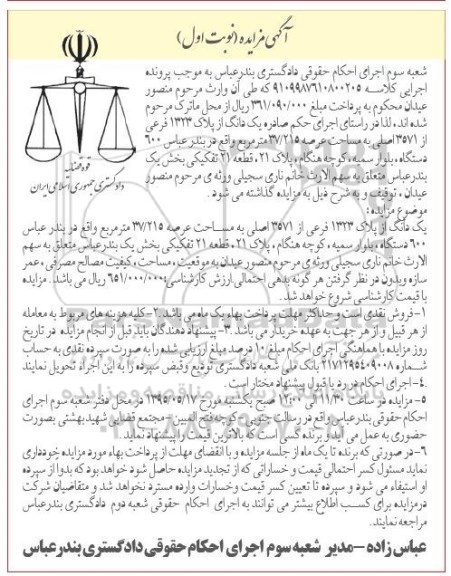 آگهی مزایده (نوبت اول)
شعبه سوم اجرای احکام حقوقی دادگستری بندرعباس به موجب پرونده
اجرایی کلاسه ۹۱۰۹۹۸۷۶۱۰۸۰۰۲۰۵ که طی آن وارث مرحوم منصور
عیدان محکوم به پرداخت مبلغ ۳۶۱/۰۹۰/۰۰۰ ریال از محل ماترک مرحوم
شده اند، لذا در راستای اجرای حکم صادره یک دانگ از پلاک ۱۳۲۳ فرعی
از ۳۵۷۱ اصلی به مساحت عرصه ۳۷/۲۱۵ مترمربع واقع در بندر عباس ۶۰۰
دستگاه، بلوار سمیه، کوچه هنگام، پلاک ۲۱، قطعه ۲۱ تفکیکی بخش یک
بندرعباس متعلق به سهم الارث خانم ناری سجیلی ورثه ی مرحوم منصور
عیدان، توقیف و به شرح ذیل به مزایده گذاشته می شود.
قوه قضاییه
دادگستری جمهوری اسلامی ایران
موضوع مزایده:
یک دانگ از پلاک ۱۳۲۳ فرعی از ۳۵۷۱ اصلی به مساحت عرصه ۳۷/۲۱۵ مترمربع واقع در بندر عباس
۶۰۰ دستگاه، بلوار سمیه، کوچه هنگام، پلاک ۲۱، قطعه ۲۱ تفکیکی بخش یک بندرعباس متعلق به سهم
الارث خانم ناری سجیلی ورثه ی مرحوم منصور عیدان به موقعیت، مساحت، کیفیت مصالح مصرفی، عمر
سازه وبدون در نظر گرفتن هر گونه بدهی احتمالی ارزش کارشناسی: ۶۵۱/۰۰۰/۰۰۰ ریال می باشد. مزایده
با قیمت کارشناسی شروع خواهد شد.
۱-فروش نقدی است و حداکثر مهلت پرداخت بهاء یک ماه می باشد. ۲-کلیه هزینه های مربوط به معامله
از هر قبیل و از هر جهت به عهده خریدار می باشد. ۳-پیشنهاد دهندگان باید قبل از انجام مزایده در تاریخ
روز مزایده با هماهنگی اجرای احکام مبلغ ۱۰ درصد مبلغ ارزیابی شده را به صورت سپرده نقدی به حساب
شماره ۲۱۷۱۲۹۵۴۰۹۰۰۸ بانک ملی شعبه دادگستری تودیع وقبض سپرده را به این اجراء تحویل نمایند
۴-اجرای احکام در رد یا قبول پیشنهاد مختار است.
۵- مزایده در ساعت ۱۱/۳۰ الی ۱۲:۰۰ صبح یکشنبه مورخ ۱۳۹۵/۰۵/۱۷ در محل دفتر شعبه سوم اجرای
احکام حقوقی بندرعباس واقع در رسالت جنوبی - کوچه فتح المبین - مجتمع قضایی شهید بهشتی بصورت
حضوری به عمل می آید و برنده کسی است که بالاترین قیمت را پیشنهاد نماید.
۶-در صورتی که برنده تا یک ماه از جلسه مزایده و با انقضای مهلت از پرداخت بهاء مورد مزایده خودداری
نماید مسئول کسر احتمالی قیمت و خساراتی که از تجدید مزایده حاصل شود خواهد بود که بدوا از سپرده
او استیفاء می شود و سپرده تا تعیین کسر قیمت وخسارات وارده مسترد نخواهد شد و متقاضیان شرکت
درمزایده برای کسب اطلاع بیشتر می توانند به اجرای احکام حقوقی شعبه دوم دادگستری بندرعباس
مراجعه نمایند.
عباس زاده – مدیر شعبه سوم اجرای احکام حقوقی دادگستری بندرعباس